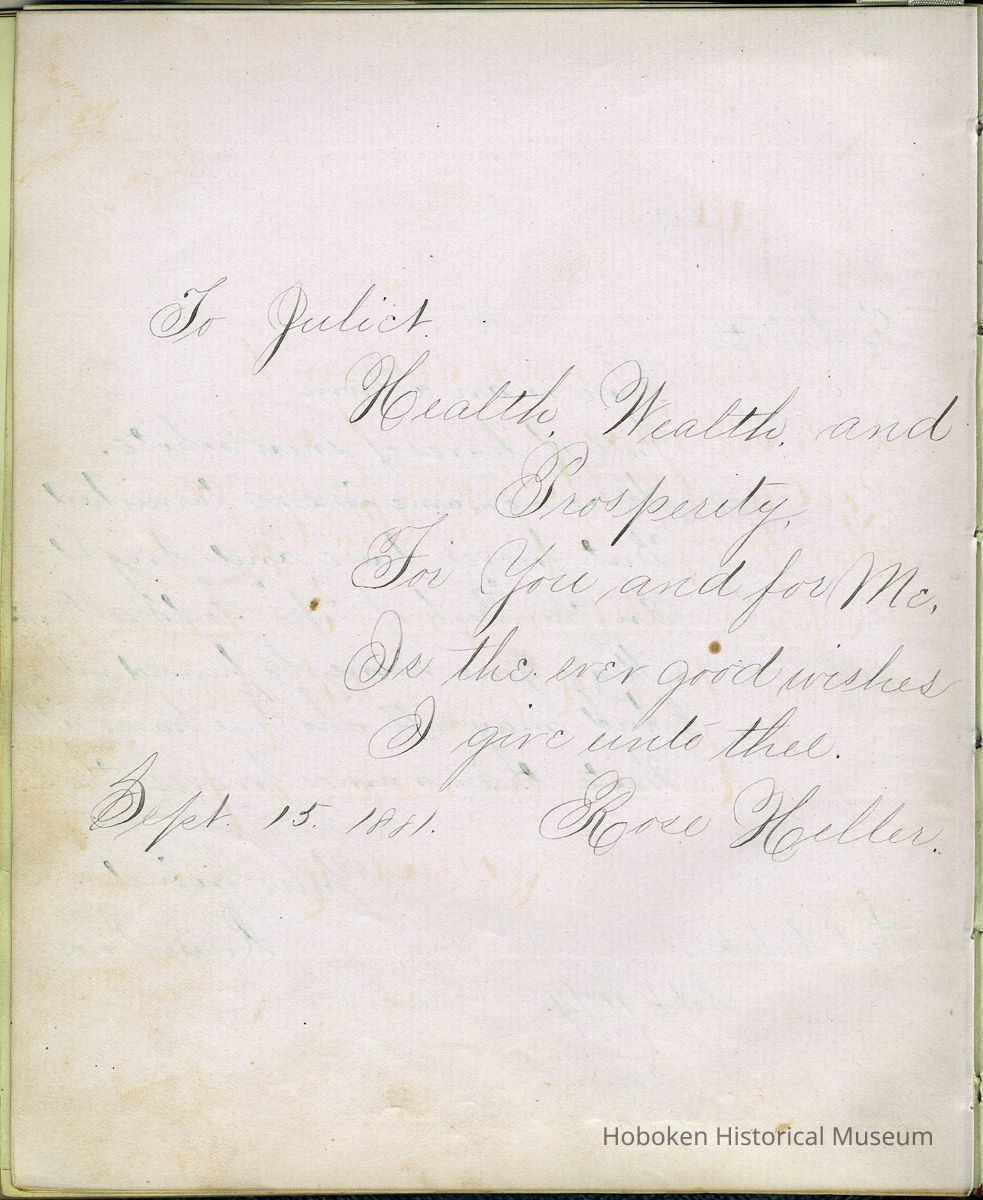 To Juliet.
Health, Wealth, and
Prosperity,
For You and for Me,
Is the ever good wishes
I give unto thee.
Sept. 15. 1881. Rose Heller.
Hoboken Historical Museum